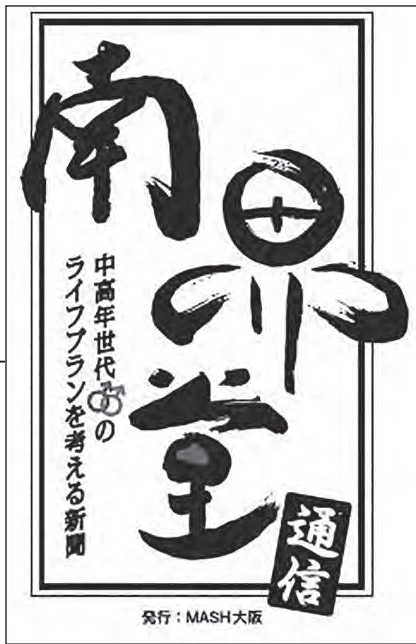 南界堂
通信
中高年世代⚣の
ライフプランを考える新聞
発行：MASH大阪